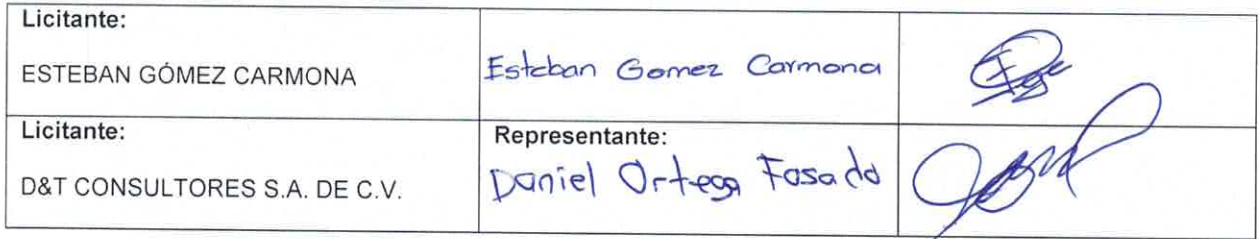 Licitante:
ESTEBAN GÓMEZ CARMONA
Esteban Gomez Carmona
Licitante:
D&T CONSULTORES S.A. DE C.V.
Representante:
Daniel Ortega Fosado